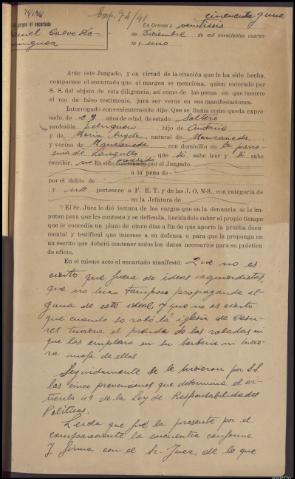 Exp. 72/41
cincuenta y una
En Orense a veintiseis
de Diciembre de mil novecientos cuaren-
ta y uno
Ante este Juzgado, y en virtud de la citación que le ha sido hecha,
comparece el encartado que al margen se menciona, quien enterado por
S. S. del objeto de esta diligencia, así como de las penas en que incurre
el reo de falso testimonio, jura ser veraz en sus manifestaciones.
Interrogado convenientemente dijo: Que se llama como queda expre-
sado, de 29 años de edad, de estado soltero
profesión hijo de
y de natural de Manzaneda
y vecino de Manzaneda con domicilio en
que si sabe leer y si sabe
escribir, no procesado por el Juzgado
a la pena de
por el delito de
y no pertenece a F. E. T. y de las J. O. N-S, con categoría de
en la Jefatura de
El Sr. Juez le dió lectura de los cargos que en la denuncia se le im-
putan para que los conteste y se defienda, haciéndole saber el propio tiempo
que le conceda un plazo de cinco días a fin de que aporte la prueba docu-
mental y testifical que interese a su defensa o para que la proponga en
un escrito que deberá contener todos los datos necesarios para su práctica
de oficio.
En el mismo acto el encartado manifestó: Que no es
cierto que fuera de ideas izquierdistas,
que no hizo tampoco propaganda al-
guna de este ideal, y que no es cierto
que cuando se robó la iglesia de
tuviera el producto de las robadas ni
que las empleara en su barbería ni hicie-
ra mofa de ellas
Seguidamente le fueron por S.S.
las cinco prevenciones que determina el ar-
tículo 49 de la Ley de Responsabilidades
Políticas.
Leida que fué la presente por el
compareciente la encuentra conforme
y firma con el Sr. Juez, de lo que